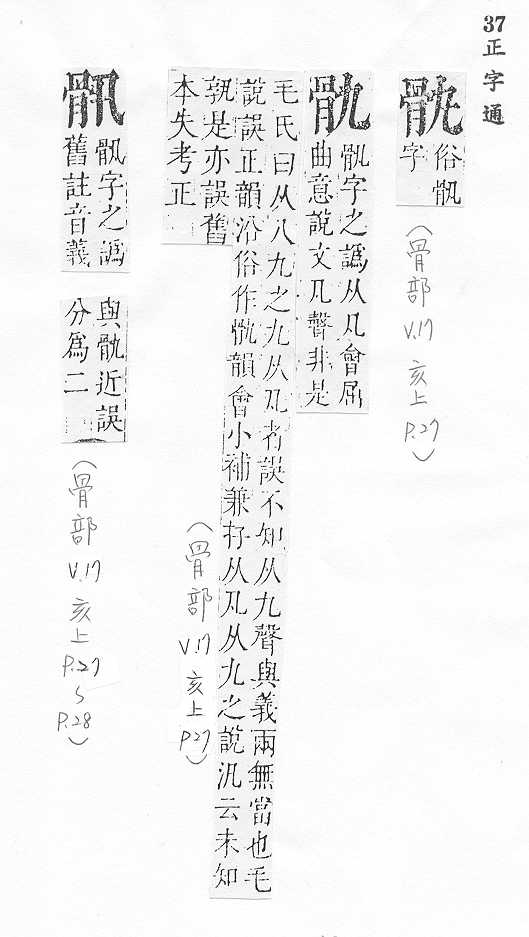 37正字通
俗骫
字
（骨部 V.17 亥上 P.27）
骩
骫字之譌从凡會屈
曲意說文凡聲非是
毛氏曰从八九之九从凡者誤不知从九聲與義兩無當也毛
說誤正韻沿俗作骩韻會小補兼存从凡从九之說汎云未知
孰是亦誤舊
本失考正
（骨部 V.17 亥上 P.27）
骫字之譌
舊註音義
與骩近誤
分爲二
（骨部 V.17 亥上 P.27~P.28）